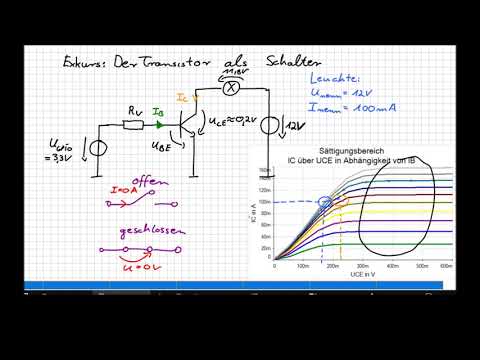 Exkurs: Der Transistor als Schalter
11,8V
Leuchte:
Unenn = 12V
Inenn = 100mA
IC
RV
IB
UCE≈0,2V
UBE
12V
UGPIO
=3,3V
offen
I=0A
geschlossen
U=0V
Sättigungsbereich
IC über UCE in Abhängigkeit von IB
IC in A
160m
140m
120m
100m
80m
60m
40m
20m
0
0
100m
200m
300m
400m
500m
600m
UCE in V